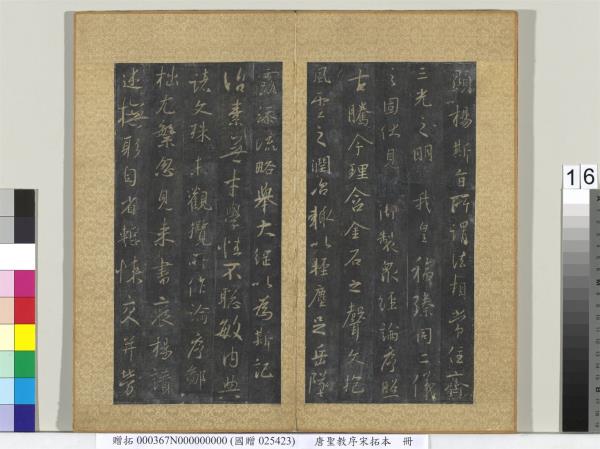 顯揚斯旨所謂法相常住齊
三光之明我皇福臻同二儀
之固伏見御製眾經論序照
古騰今理含金石之聲文抱
風雲之潤治輒以輕塵足岳墜
露添流略舉大綱以為斯記
治素無才學性不聰敏內典
諸文殊未觀攬所作論序鄙
拙尤繁忽見來書褒揚讚
述撫躬自省慚悚交並勞
贈拓 000367N000000000 (國贈 025423) 唐聖教序宋拓本 冊
16